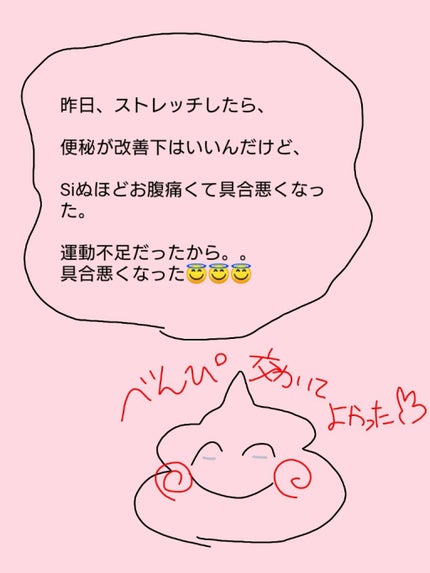 昨日、ストレッチしたら、
便秘が改善下はいいんだけど、
Siぬほどお腹痛くて具合悪くなっ
た。
運動不足だったから。。
具合悪くなった😇😇😇
べんぴ 効いて
よかった